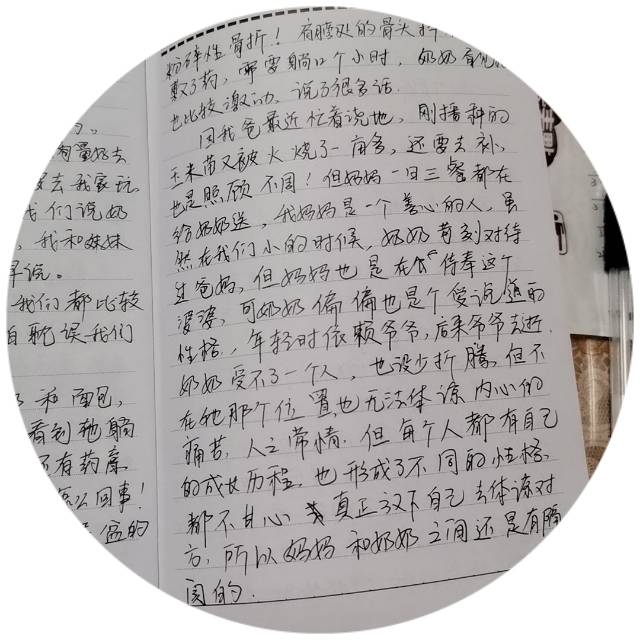 有量好去
要去我家玩。
我们说奶
，我和妹妹
早说。
我们都比较
耽误我们
和面包，
看到她躺
还有药膏
怎么回事！
粉碎性骨折！肩膀处的骨头折
敷了药，需要躺几个小时，奶奶看见
也比较激动，说了很多话.
因我爸最近忙着说地，刚播种的
玉米苗又被火烧了一亩多，还要去补，
也是照顾不周！但妈妈一日三餐都在
给奶奶送，我妈妈是一个善心的人，虽
然在我们小的时候，奶奶苛刻对待
过爸妈，但妈妈也是在侍奉这个
婆婆，可奶奶偏偏也是个爱说道的
性格，年轻时依赖爷爷，后来爷爷去逝.
奶奶受不了一个人，也没少折腾，但不
在她那个位置也无法体谅内心的
痛苦，人之常情.但每个人都有自己
的成长历程，也形成了不同的性格，
都不甘心真正放下自己去体谅对
方，所以妈妈和奶奶之间还是有隔
阂的.